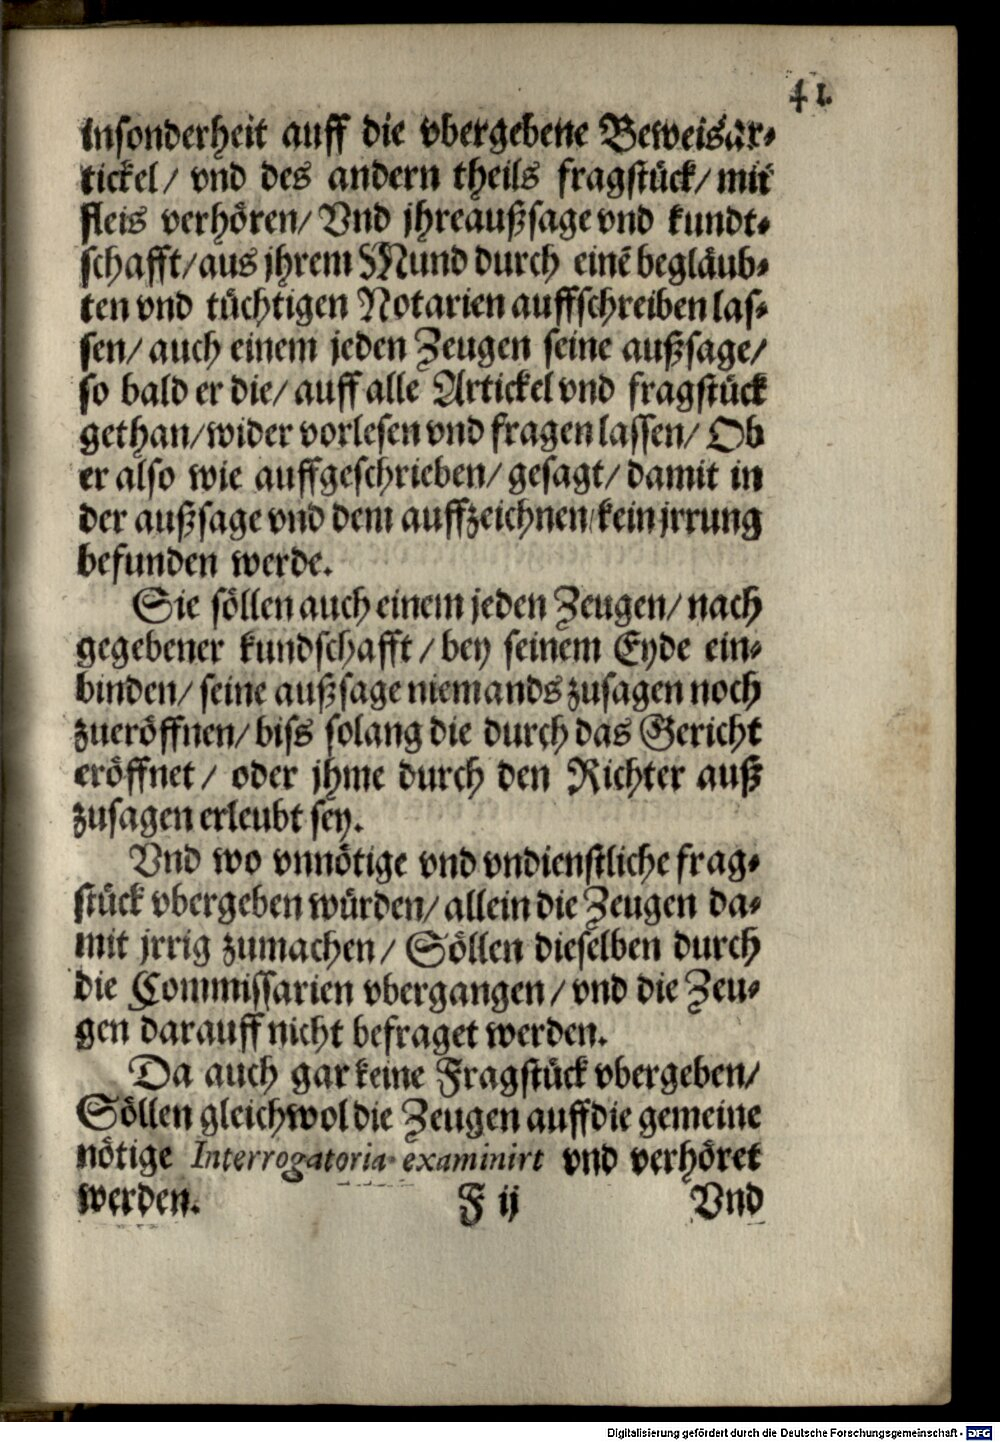 41.
insonderheit auff die vbergebene Beweisar-
tickel/ vnd des andern theils fragstück/ mit
fleis verhören/ Vnd jhreaußsage vnd kundt-
schafft/ aus jhrem Mund durch einē begläub-
ten vnd tüchtigen Notarien auffschreiben las-
sen/ auch einem jeden Zeugen seine außsage/
so bald er die/ auff alle Artickel vnd fragstück
gethan/ wider vorlesen vnd fragen lassen/ Ob
er also wie auffgeschrieben/ gesagt/ damit in
der außsage vnd dem auffzeichnen/ kein jrrung
befunden werde.
Sie söllen auch einem jeden Zeugen/ nach
gegebener kundschafft/ bey seinem Eyde ein-
binden/ seine außsage niemands zusagen noch
zueröffnen/ biss solang die durch das Gericht
eröffnet/ oder jhme durch den Richter auß
zusagen erleubt sey.
Vnd wo vnnötige vnd vndienstliche frag-
stück vbergeben würden/ allein die Zeugen da-
mit jrrig zumachen/ Söllen dieselben durch
die Commissarien vbergangen/ vnd die Zeu-
gen darauff nicht befraget werden.
Da auch gar keine Fragstück vbergeben/
Söllen gleichwol die Zeugen auff die gemeine
nötige Interrogatoria examinirt vnd verhöret
werden. F ij Vnd
Digitalisierung gefördert durch die Deutsche Forschungsgemeinschaft - DFG